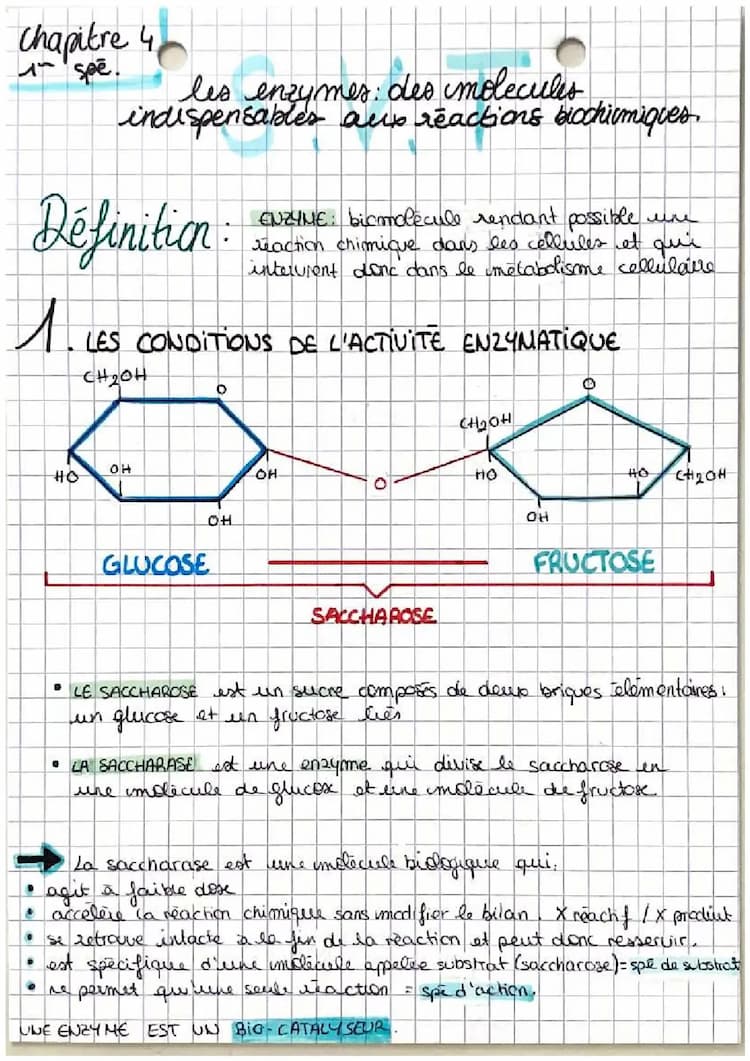 Chapitre 4
1ère spé.
S.V.T
les enzymes : des molecules
indispensables aux réactions biochimiques.
Définition :
ENZYME : biomolécule rendant possible une
réaction chimique dans les cellules et qui
intervient donc dans le métabolisme cellulaire
1. LES CONDITIONS DE L'ACTIVITÉ ENZYMATIQUE
CH2OH O
HO OH OH
OH
O
CH2OH O
HO HO CH2OH
OH
GLUCOSE FRUCTOSE
SACCHAROSE
• LE SACCHAROSE est un sucre composés de deux briques élémentaires :
un glucose et un fructose liés
• LA SACCHARASE est une enzyme qui divise le saccharose en
une molécule de glucose et une molécule de fructose
➡ La saccharase est une molécule biologique qui :
• agit à faible dose
• accélère la réaction chimique sans modifier le bilan. X réactif / X produit
• se retrouve intacte à la fin de la réaction et peut donc resservir.
• est spécifique d'une molécule appelée substrat (saccharose) = spé de substrat
• ne permet qu'une seule réaction = spé d'action.
UNE ENZYME EST UN BIO-CATALYSEUR.